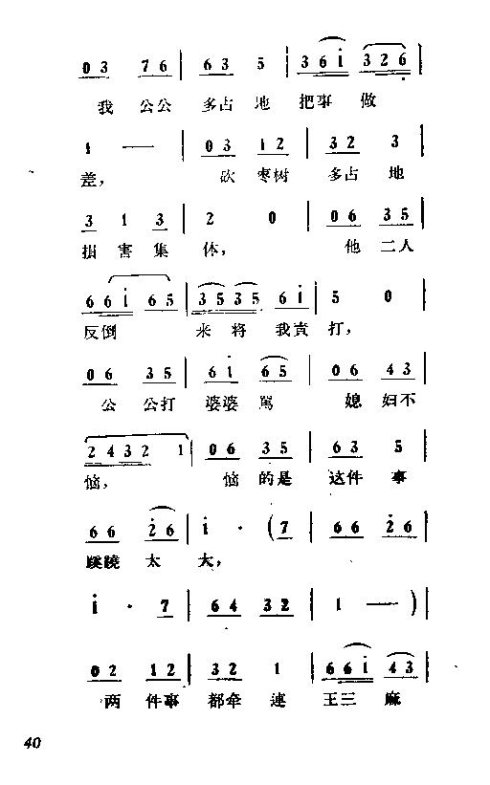 0 3 7 6 | 6 3 5 | 3 6 i 3 2 6 |
我 公公 多占 地 把事 做
1 — | 0 3 1 2 | 3 2 3 |
差, 砍 枣树 多占 地
3 1 3 | 2 0 | 0 6 3 5 |
损 害 集 体, 他 二人
6 6 i 6 5 | 3 5 3 5 6 i | 5 0 |
反倒 来 将 我责 打,
0 6 3 5 | 6 i 6 5 | 0 6 4 3 |
公 公打 婆婆 骂 媳 妇不
2 4 3 2 1 | 0 6 3 5 | 6 3 5 |
恼, 恼 的是 这件 事
6 6 2 6 | i · ( 7 | 6 6 2 6 |
蹊跷 太 大,
i · 7 | 6 4 3 2 | 1 — ) |
0 2 1 2 | 3 2 1 | 6 6 i 4 3 |
两 件事 都牵 連 王三 麻
40